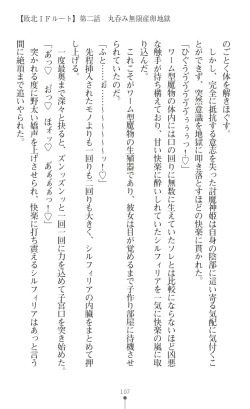 【敗北IFルート】第二話　丸呑み無限産卵地獄
てごとく体を解きほぐす。
しかし、完全に抵抗する意志を失った討魔神姫は自身の陰部に這い寄る気配に気付くことができず、突然意識を地獄に叩き落とすほどの快楽に貫かれた。
ワーム型魔物の体内には口の回りに無数に生えていたソレとは比較にならないほど凶悪な触手が待ち構えており、甘い快楽に酔いしれていたシルフィリアを一気に快楽の嵐に取り込んだ。
これこそがワーム型魔物の生殖器官であり、彼女は目が覚めるまで子作り部屋に待機させられていたのだ。
先程挿入されたモノよりも一回りも二回りも大きく、シルフィリアの内臓をまとめて押し上げる。
一度最奥まで深々と抉ると、ズシッズシッと一回一回に力を込めて子宮口を突き始めた。
「あっ♡　おっ♡　ああああっー♡」
突かれる度に野太い嬌声を上げさせられ、快楽に打ち震えるシルフィリアはあっと言う間に絶頂まで追いやられる。
107